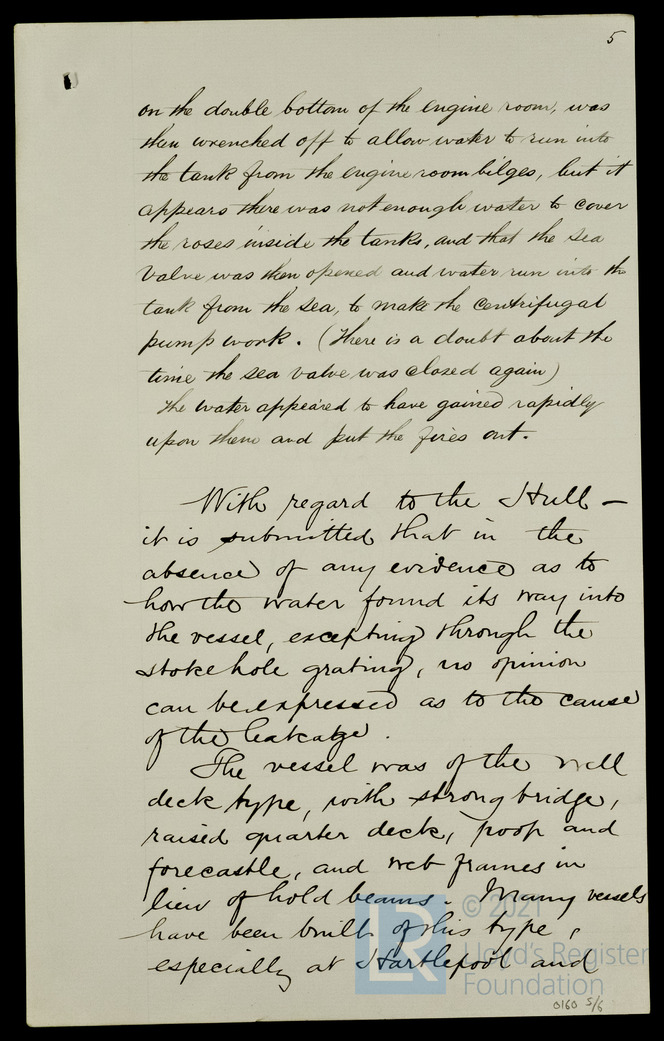 5
on the double bottom of the engine room, was
then wrenched off to allow water to run into
the tank from the engine room bilges, but it
appears there was not enough water to cover
the roses inside the tanks, and that the sea
valve was then opened and water run into the
tank from the sea, to make the centrifugal
pump work. (There is a doubt about the
time the sea valve was closed again)
The water appeared to have gained rapidly
upon them and put the fires out.
With regard to the Hull —
it is submitted that in the
absence of any evidence as to
how the water found its way into
the vessel, excepting through the
stokehole grating, no opinion
can be expressed as to the cause
of the leakage.
The vessel was of the well
deck type, with strong bridge,
raised quarter deck, poop and
forecastle, and web frames in
lieu of hold beams. Many vessels
have been built of this type,
especially at Hartlepool and
© 2021
Lloyd's Register
Foundation
LR
0160 5/6